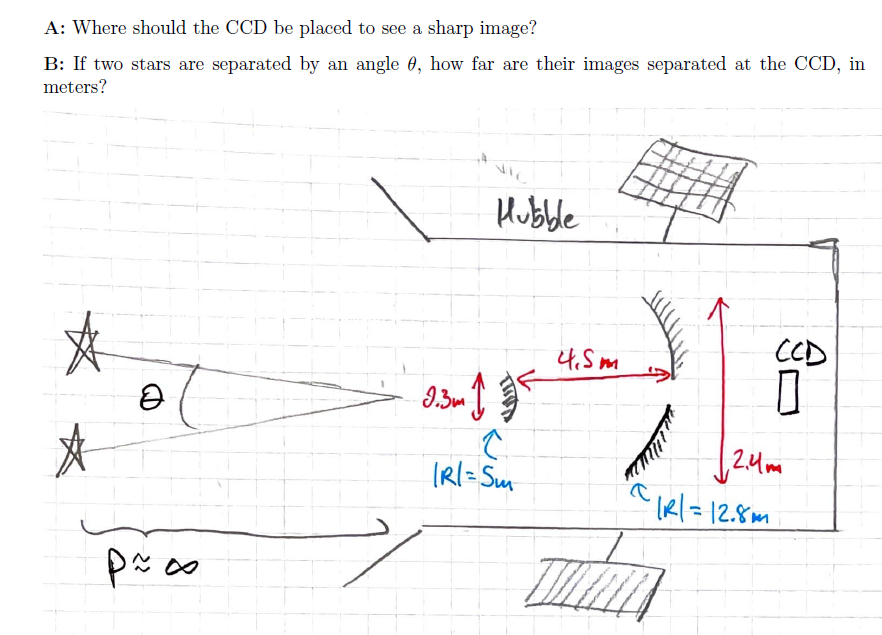 A: Where should the CCD be placed to see a sharp image?
B: If two stars are separated by an angle θ, how far are their images separated at the CCD, in
meters?
Hubble
4.5m
CCD
θ
0.3m
2.4m
|R|=5m
|R|=12.8m
P≈∞